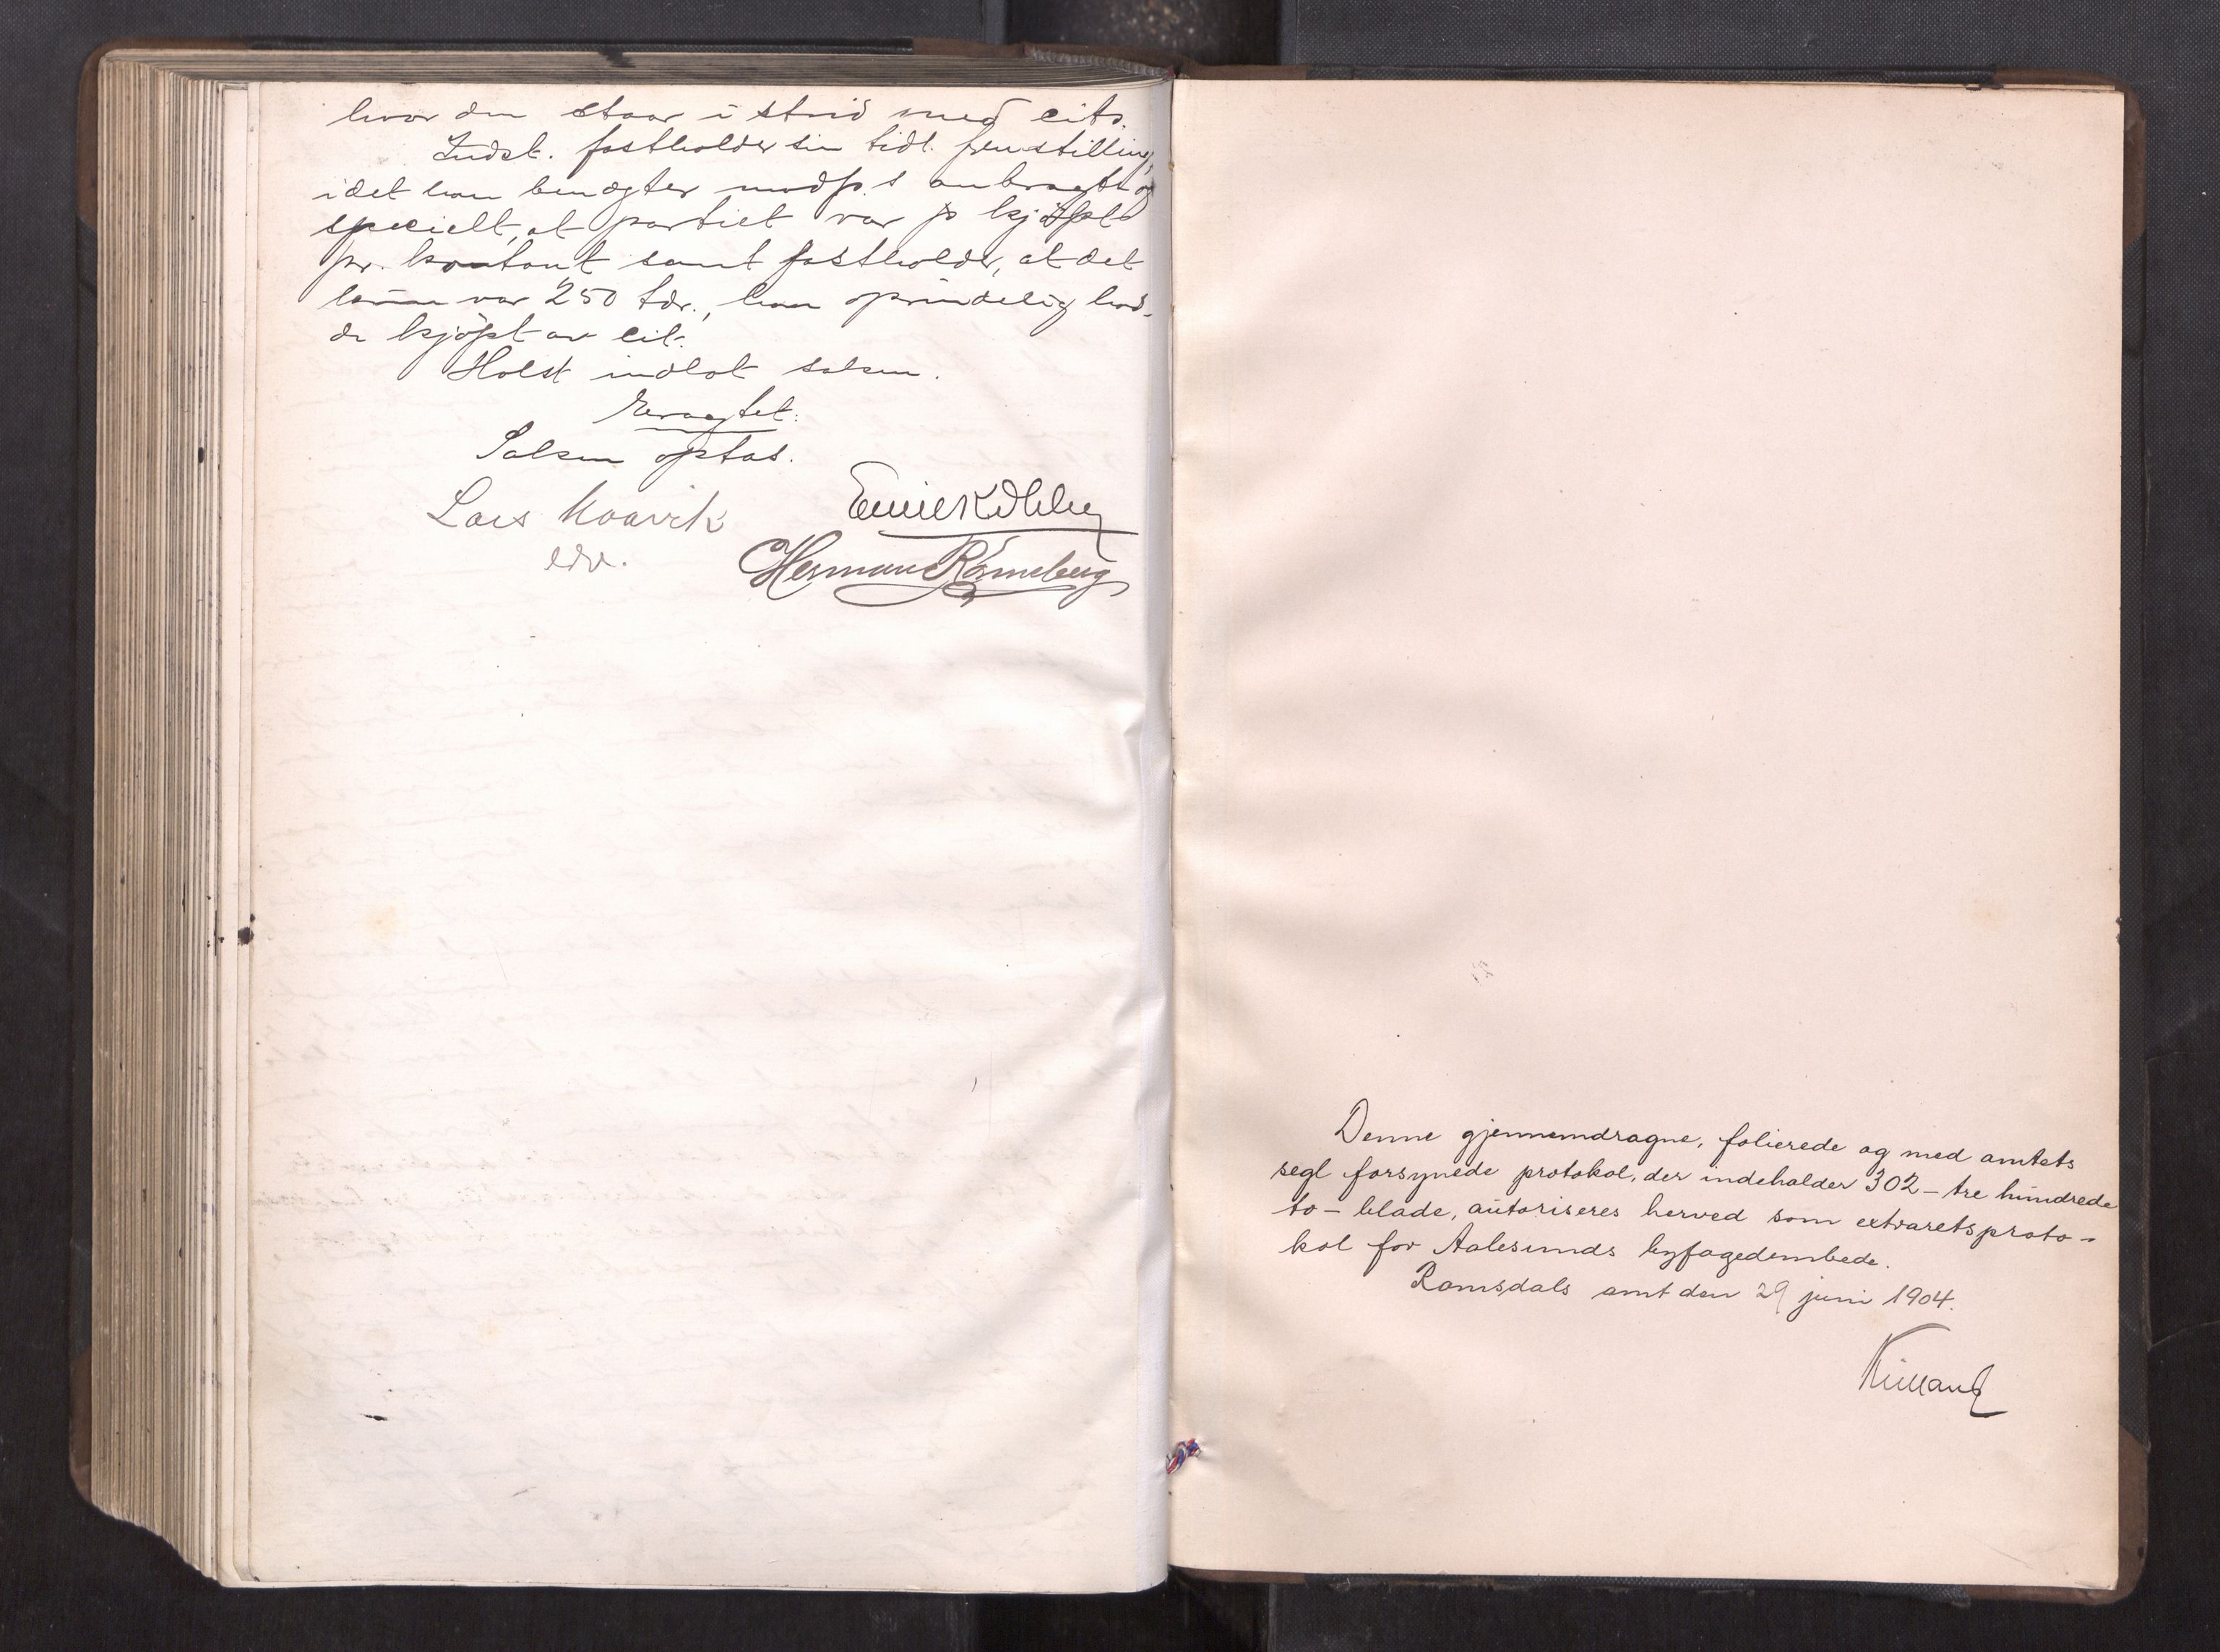 hvor den staar i strid med cits.
Indst. fastholder sin tidl. fremstilling,
idet han benægter modp.s anbragte og
specielt, at partiet var kjöpt
pr. kontant samt fastholder, at det
var 250 tdr., han oprindelig had-
de kjöpt av cit.
Holst indlot saken.
Eragtet:
Saken optas.
Lars
edv.
Herman Rönneberg
Denne gjennemdragne, folierede og med amtets
segl forsynede protokol, der indeholder 302 – tre hundrede
to – blade, autoriseres herved som extraretsproto-
kol for Aalesunds byfogedembede.
Romsdals amt den 29 juni 1904.
Kielland